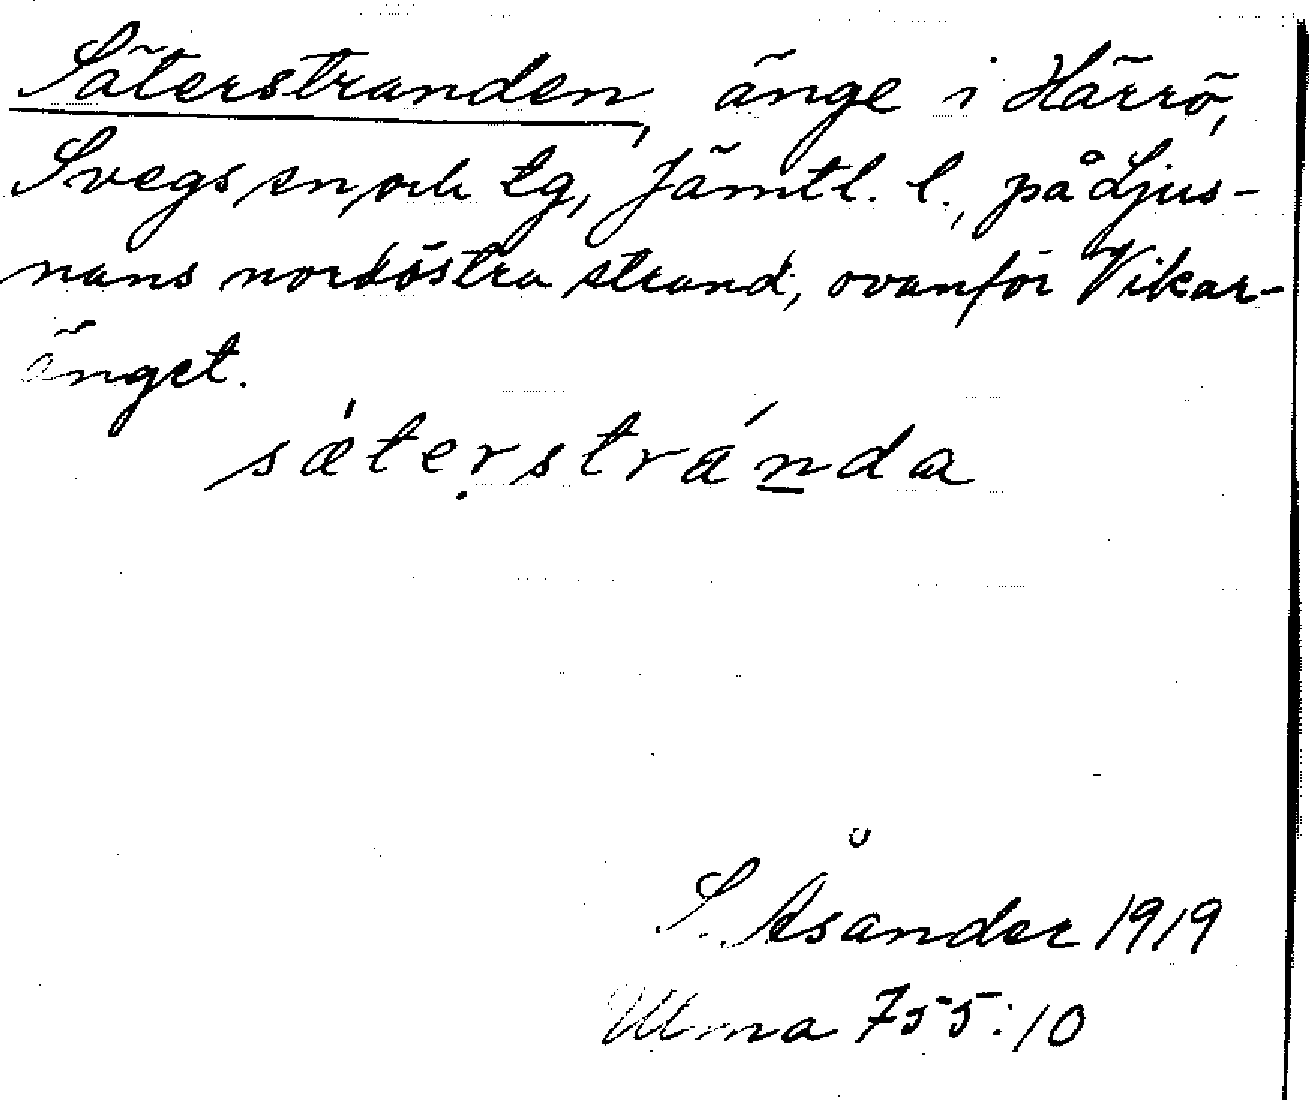 Säterstranden, änge i Härrö,
Svegs sn och tg, Jämtl. l., på Ljus-
nans nordöstra strand, ovanför Vikar-
änget.
sǽtẹrstrán̲da
S. Åsander 1919
Ulma 755:10